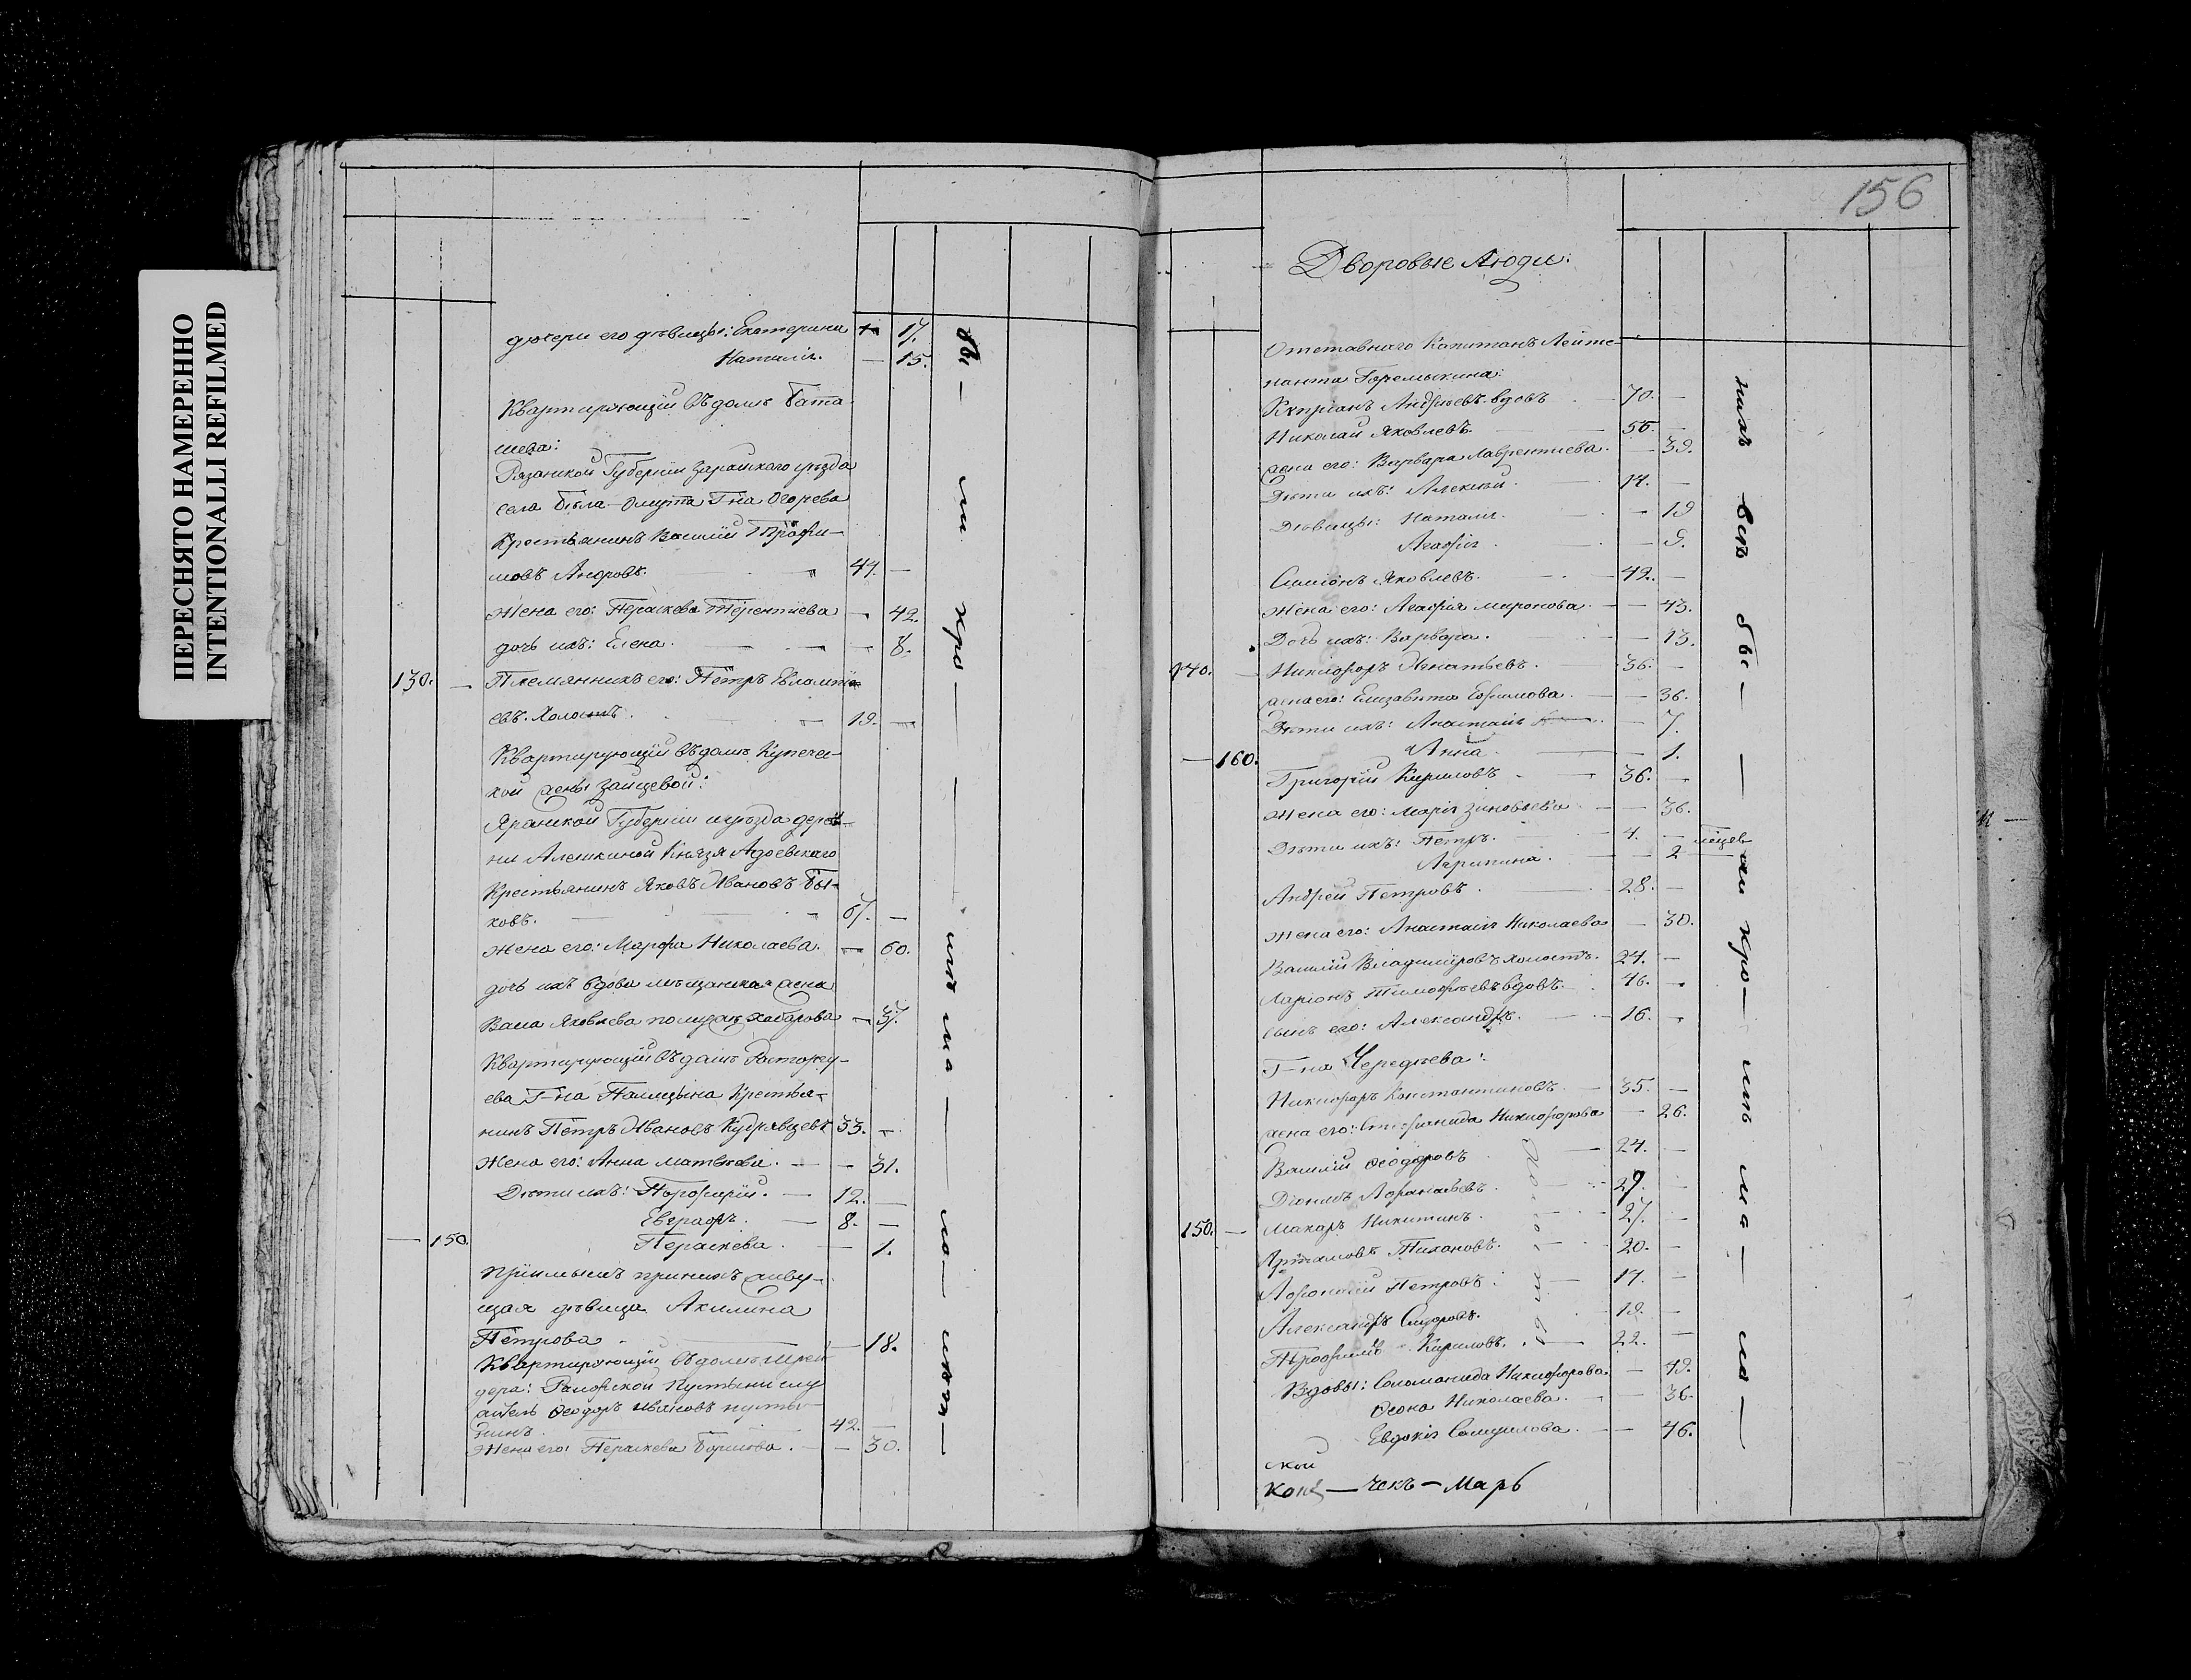 ПЕРЕСНЯТО НАМЕРЕННО
INTENTIONALLI REFILMED
дочери его дѣвицы: Екатерина 17.
Наталія. — 15.
Квартирующій въ домѣ Бата-
шева:
Рязанской Губерніи Зарайскаго уѣзда
села Бѣла-Омута Г-на Огорева
Крестьянинъ Василій Трофи-
мовъ 44. —
Жена его: Пераскева Терентіева — 42.
дочь ихъ: Елена. — 8.
130. — Племянникъ его: Петръ Евлампі-
евъ. Холостъ. 19. —
Квартирующій въ домѣ Купечес-
кой жены Зайцевой:
Губерніи и уѣзда дерев-
ни Алешкиной Князя
Крестьянинъ Яковъ Ивановъ Бы-
ковъ. 67. —
Жена его: Марфа Николаева. — 60.
дочь ихъ вдова мѣщанская жена
Васа Яковлева по мужѣ Хабарова — 37.
Квартирующій въ домѣ Расторгу-
ева Г-на Палицына Крестья-
нинъ Петръ Ивановъ Кудрявцевъ 33. —
Жена его: Анна Матвѣева. — 31.
Дѣти ихъ: Порфирій. — 12. —
Евграфъ. — 8. —
— 150. Пераскева. — 1.
Пріимышъ при нихъ живу-
щая дѣвица Акилина
Петрова — 18.
Квартирующій въ домѣ
дера: Пустыни слу
житель Ѳеодоръ
42. —
Жена его: Пераскева Борисова. — 30.
бы — ли кро — — — мѣ ма — ло — лѣт —
156
Дворовые Люди:
Отставнаго Капитанъ Лейте-
нанта Горемыкина:
Кипріанъ Андреевъ вдовъ 70. —
Николай Яковлевъ. 55. —
жена его: Варвара Лаврентіева. — 39.
Дѣти ихъ: Алексѣй. 14. —
Дѣвицы: Наталія. — 19
Агафія. — 9.
Симіонъ Яковлевъ. 42. —
Жена его: Агафія Миронова. — 43.
Дочь ихъ: Варвара. — 13.
140. — Никифоръ Игнатьевъ. 36. —
жена его: Елизавета Ефимова. — 36.
Дѣти ихъ: Анастасія — 7.
— 160. Анна. — 1.
Григорій Кириловъ 36. —
Жена его: Марія Зиновьева — 36.
Дѣти ихъ: Петръ. 4. —
Агрипина. — 2
Андрей Петровъ. 28. —
Жена его: Анастасія Николаева — 30.
Василій Владиміровъ холостъ. 24. —
Ларіонъ Тимофеевъ вдовъ. 46. —
сынъ его: Александръ. 16. —
Г-на Чередѣева:
Никифоръ Константиновъ. 35. —
жена его: Степанида Никифорова — 26.
Василій Ѳеодоровъ 24. —
Діонисъ Афанасьевъ. 29. —
150. — Макаръ Никитинъ. 27. —
Артамонъ Тихановъ. 20. —
Афонасій Петровъ. 17. —
Александръ Сидоровъ. 19. —
Трофимъ Кириловъ. 22. —
холосты
Вдовы: Соломонида Никифорова — 49.
Ѳеона Николаева. — 36.
Евдокія Самуилова. — 46.
нихъ всѣ бы — — ли кро — мѣ ма — ла —
ской
Кон — чекъ — Марь